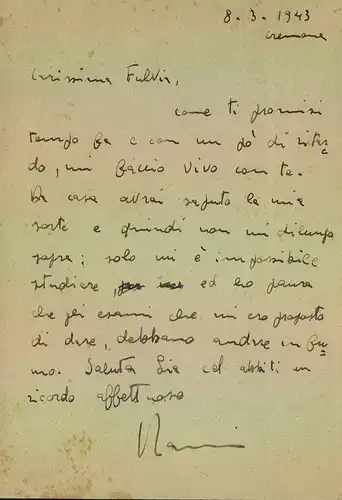 8.3.1943
Cremona
Carissima Fulvia,
come ti promisi
tempo fa e con un pò di ritar
do, mi faccio vivo con te.
Da casa avrai saputo la mia
sorte e quindi non mi dilungo
sopra: solo mi è impossibile
studiare, ed ho paura
che gli esami che mi ero proposto
di dare, debbano andare in fu
mo. Saluta Lia ed abbiti un
ricordo affettuoso